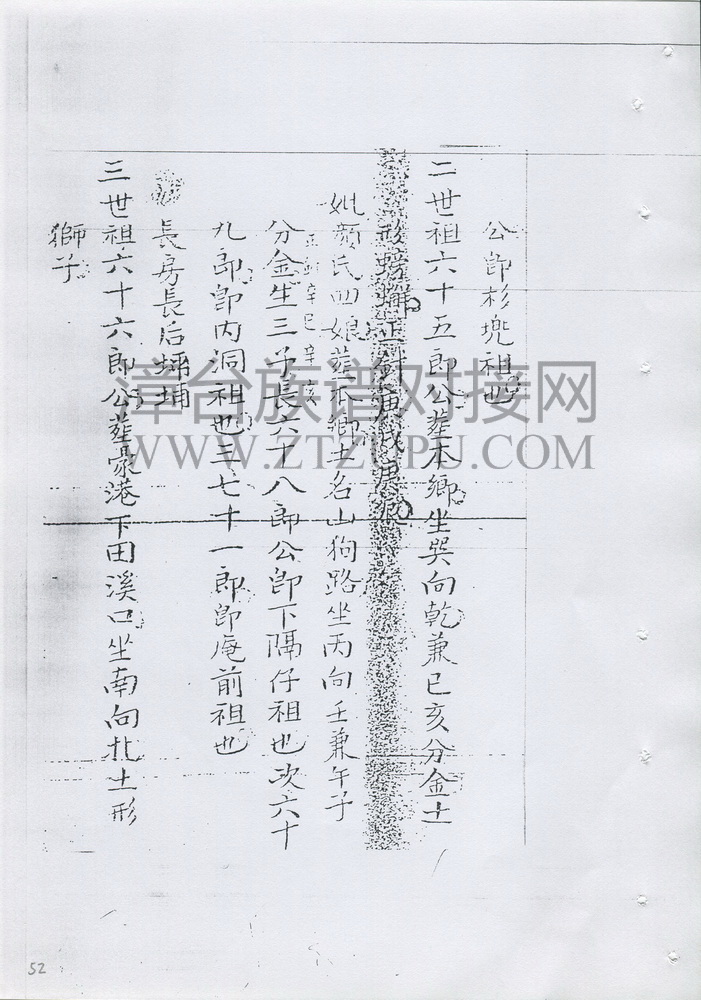 公即杉兠祖也
二世祖六十五郎公葬木鄉坐巽向乾兼巳亥分金土
形螃蟹正針庚戌庚
妣顏氏四娘葬本鄉土名山狗路坐丙向壬兼午子
分金生三子長六十八郎公即下隔仔祖也次六十
正針辛巳辛亥
九郎即內洞祖也三七十一郎即庵前祖也
長房長后坪埔
三世祖六十六郎公葬豪港下田溪口坐南向北土形
獅子
漳台族谱对接网
WWW.ZTZUPU.COM
52